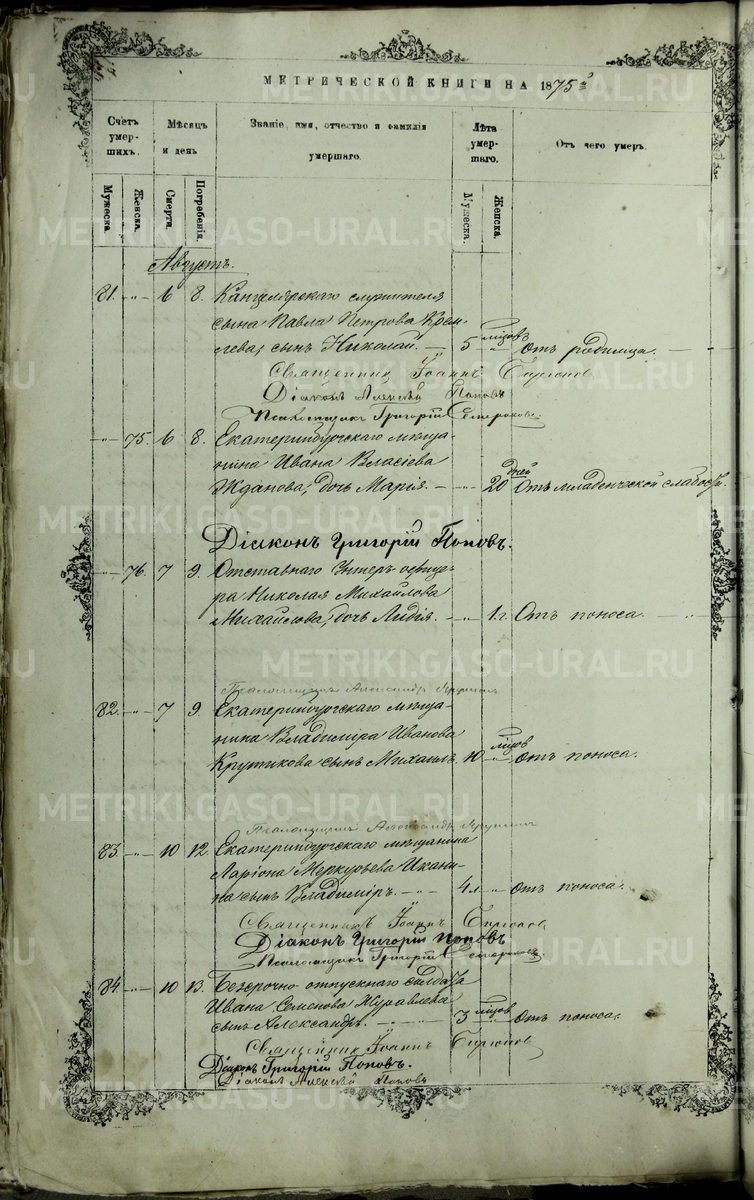 МЕТРИЧЕСКОЙ КНИГИ НА 1875й
Счетъ умершихъ. Мѣсяцъ и день Званіе, имя, отчество и фамилія умершаго. Лѣта умершаго. Отъ чего умеръ.
Мужеска. Женска. Смерти. Погребенія. Мужеска. Женска.
Августъ.
81. -"- 6 8. Канцелярскаго служителя
сына Павла Петрова
сынъ Николай. — 5 мѣцовъ -"- отъ родимца. —
Священник Іоаннъ
Діаконъ Алексѣй Поповъ
Псаломщикъ Григорій
-"- 75. 6 8. Екатеринбургскаго мѣща-
нина Ивана Власіева
Жданова, дочь Марія. — -"- 20 дней Отъ младенческой слабости.
Діаконъ Григорій Поповъ.
-"- 76. 7 9. Отставнаго Унтеръ офице-
ра Николая Михайлова
Михайлова, дочь Лидія. -"- 1 г. Отъ поноса. —
Псаломщикъ Александръ
82. -"- 7 9. Екатеринбургскаго мѣща-
нина Владиміра Иванова
Крутикова сынъ Михаилъ. 10 мѣцов -"- отъ поноса.
Псаломщикъ Александръ
83. -"- 10 12. Екатеринбургскаго мѣщанина
Ларіона Меркурьева
сынъ Владиміръ. — 4 л. -"- отъ поноса.
Священникъ Іоаннъ
Діаконъ Григорій Поповъ
Псаломщикъ Григорій
84. -"- 10 13. Безсрочно-отпускнаго солдата
Ивана Семенова Журавлева
сынъ Александръ. — 3 мѣцов -"- отъ поноса.
Священник Іоаннъ
Діаконъ Григорій Поповъ.
Діаконъ Алексѣй Поповъ
METRIKI.GASO-URAL.RU